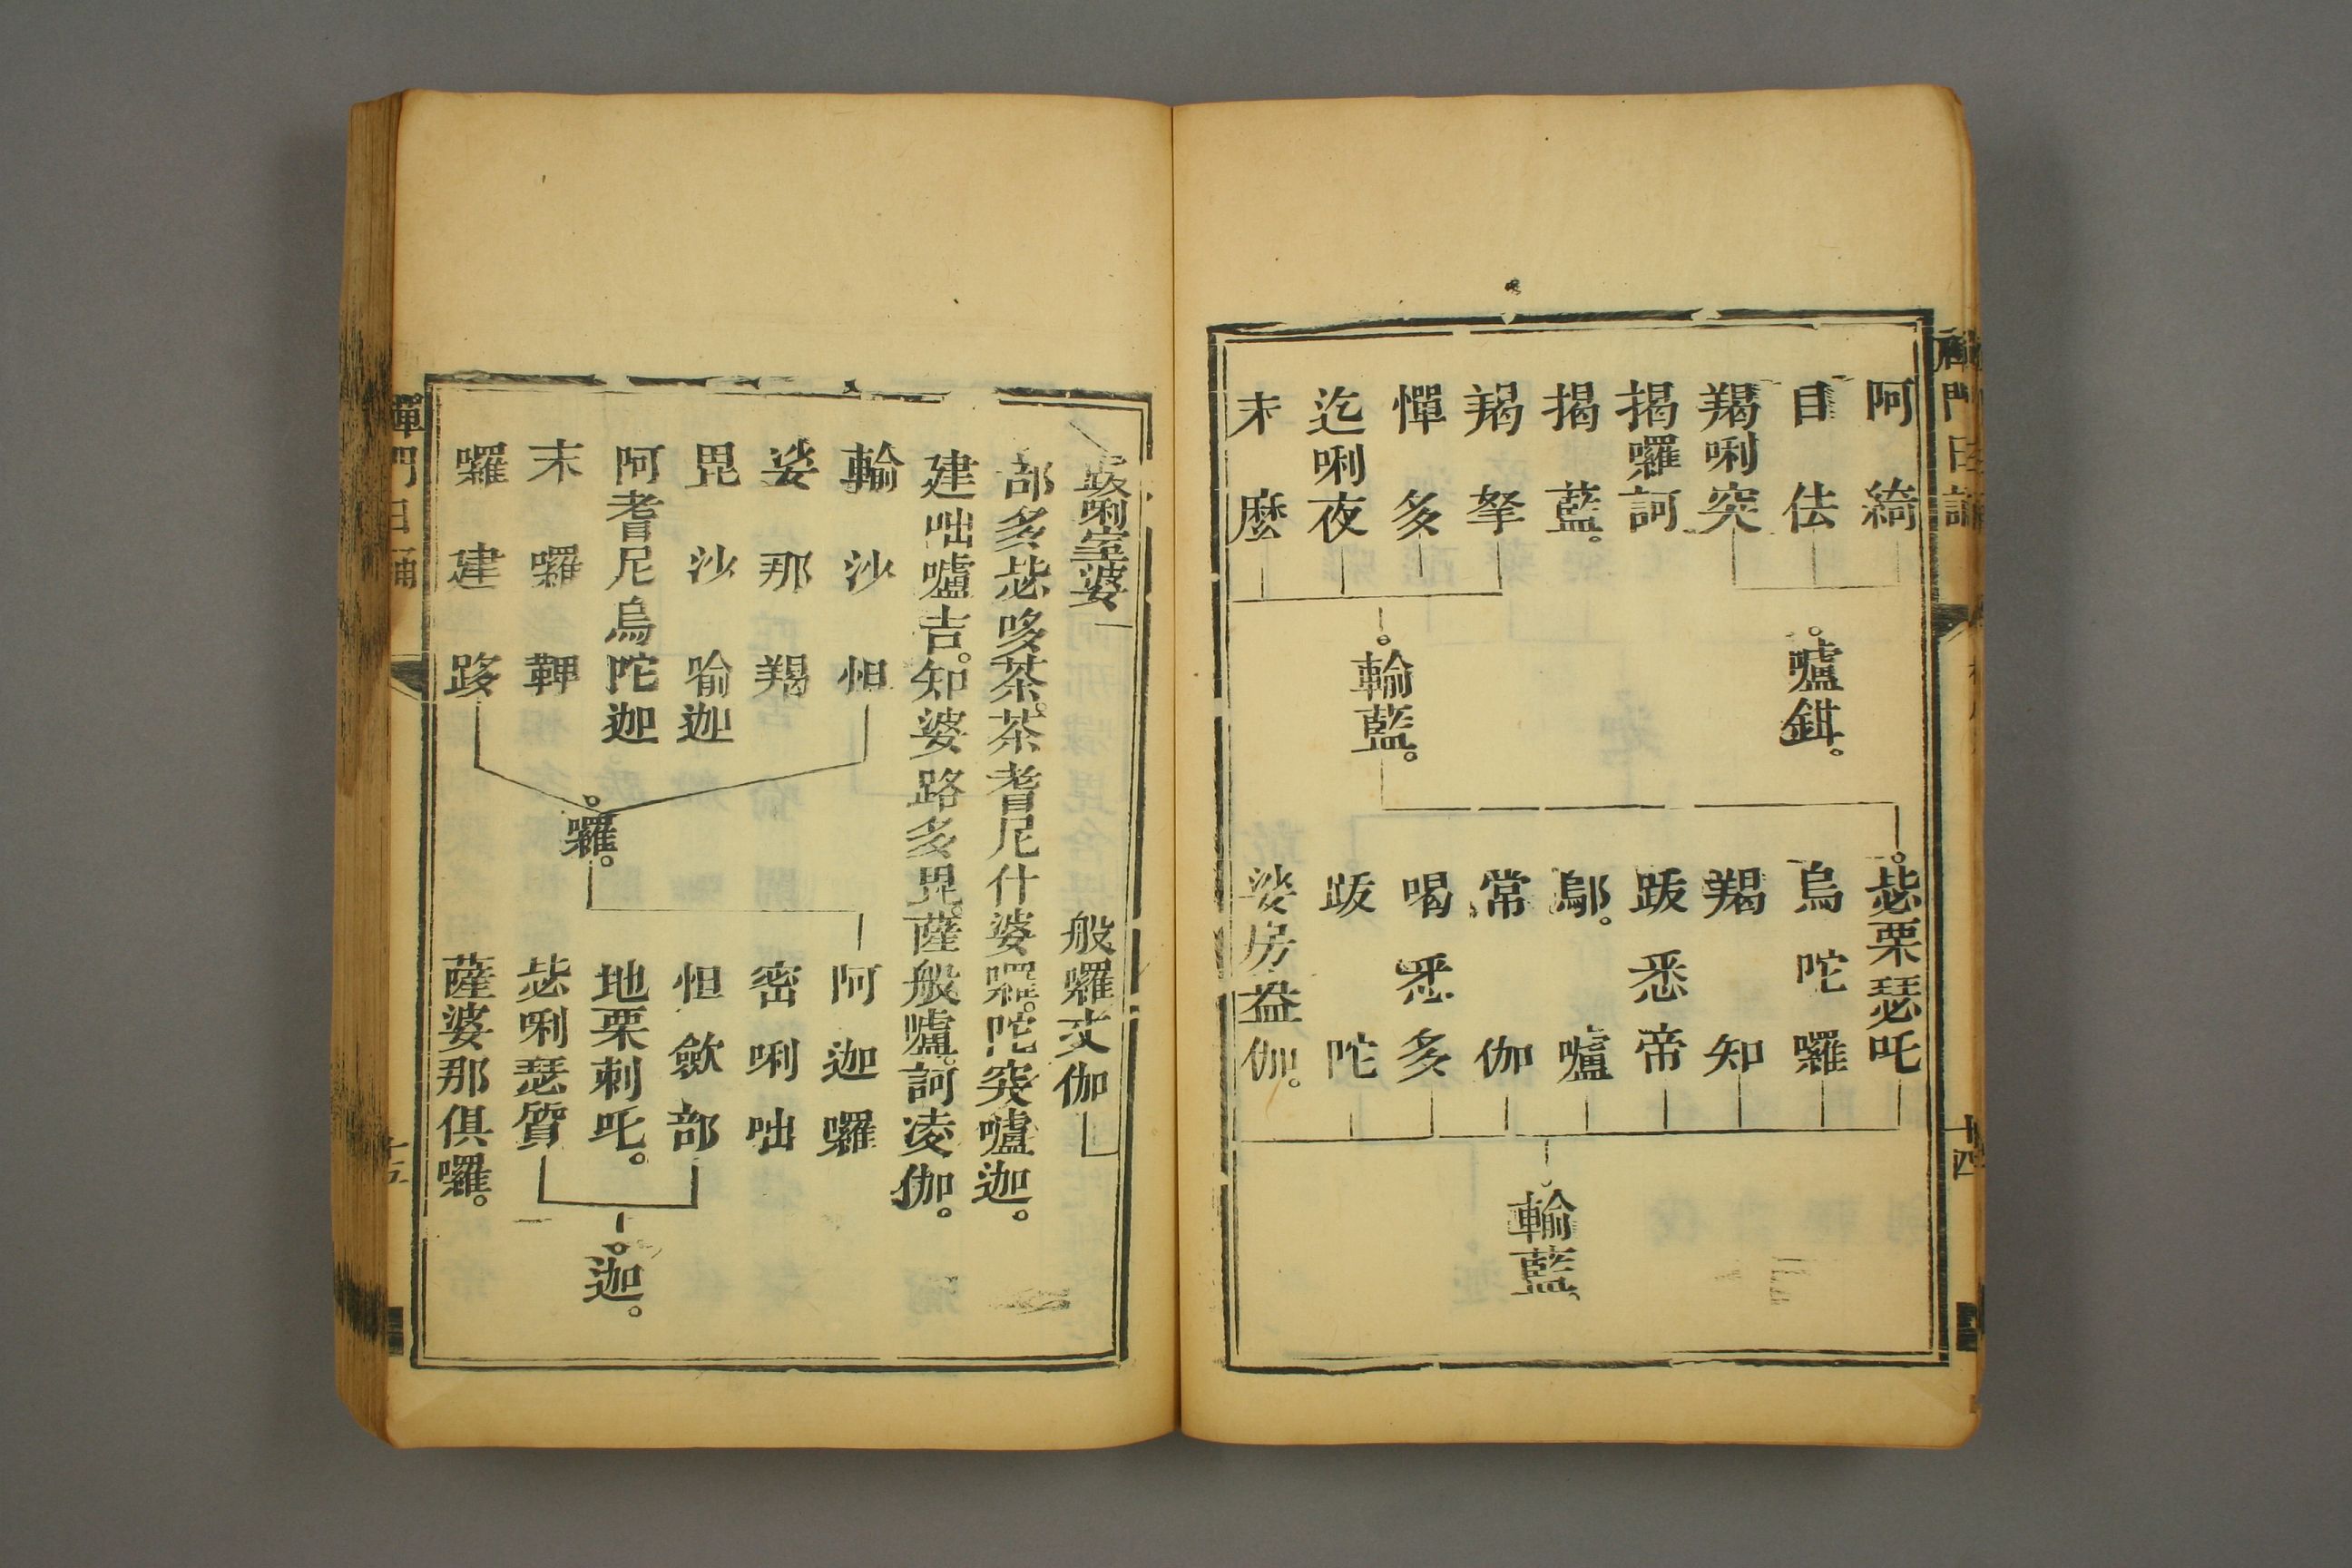 阿綺
目佉
羯唎突
揭囉訶
揭藍。
羯拏
憚多
迄唎夜
末麼
嚧鉗。
輸藍。
苾栗瑟吒
烏陀囉
羯知
跋悉帝
鄔。嚧
常伽
喝悉多
跋陀
娑房盎伽。
輸藍。
禪門日誦
十四
跋唎室婆
般囉丈伽
部多苾哆茶。茶耆尼什婆囉。陀突嚧迦。
建咄嚧吉。知婆路多毘。薩般嚧。訶凌伽。
輸沙怛
娑那羯
毘沙喻迦
阿耆尼烏陀迦
末囉鞞
囉建跢
囉。
阿迦囉
密唎咄
怛斂部
地栗剌吒。
苾唎瑟質
薩婆那俱囉。
迦。
禪門日誦
十五